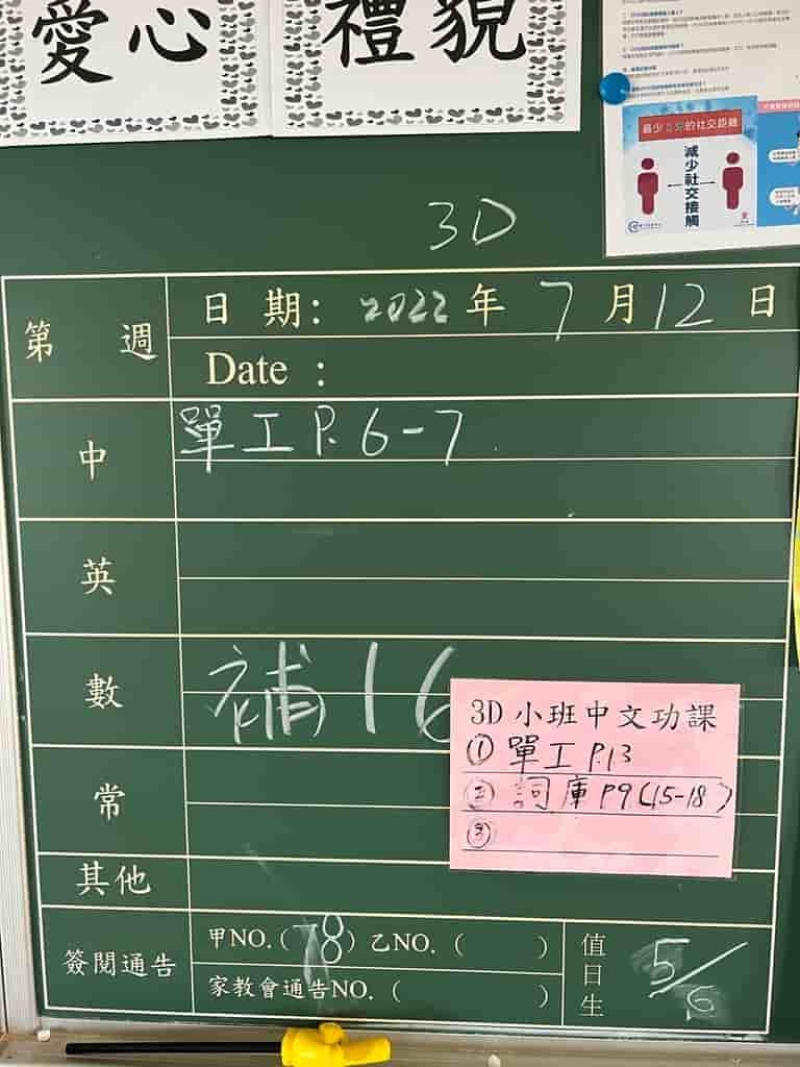 愛心
禮貌
最少1.5米的社交距離
減少社交接觸
3D
第 週
日 期: 2022 年 7 月 12 日
Date :
中
單工 P. 6-7
英
數
補 16
3D 小班中文功課
① 單工 P.13
② 詞庫 P9 (15-18)
③
常
其他
簽閱通告
甲NO. ( 78 ) 乙NO. ( )
家教會通告NO. ( )
值日生
5/6